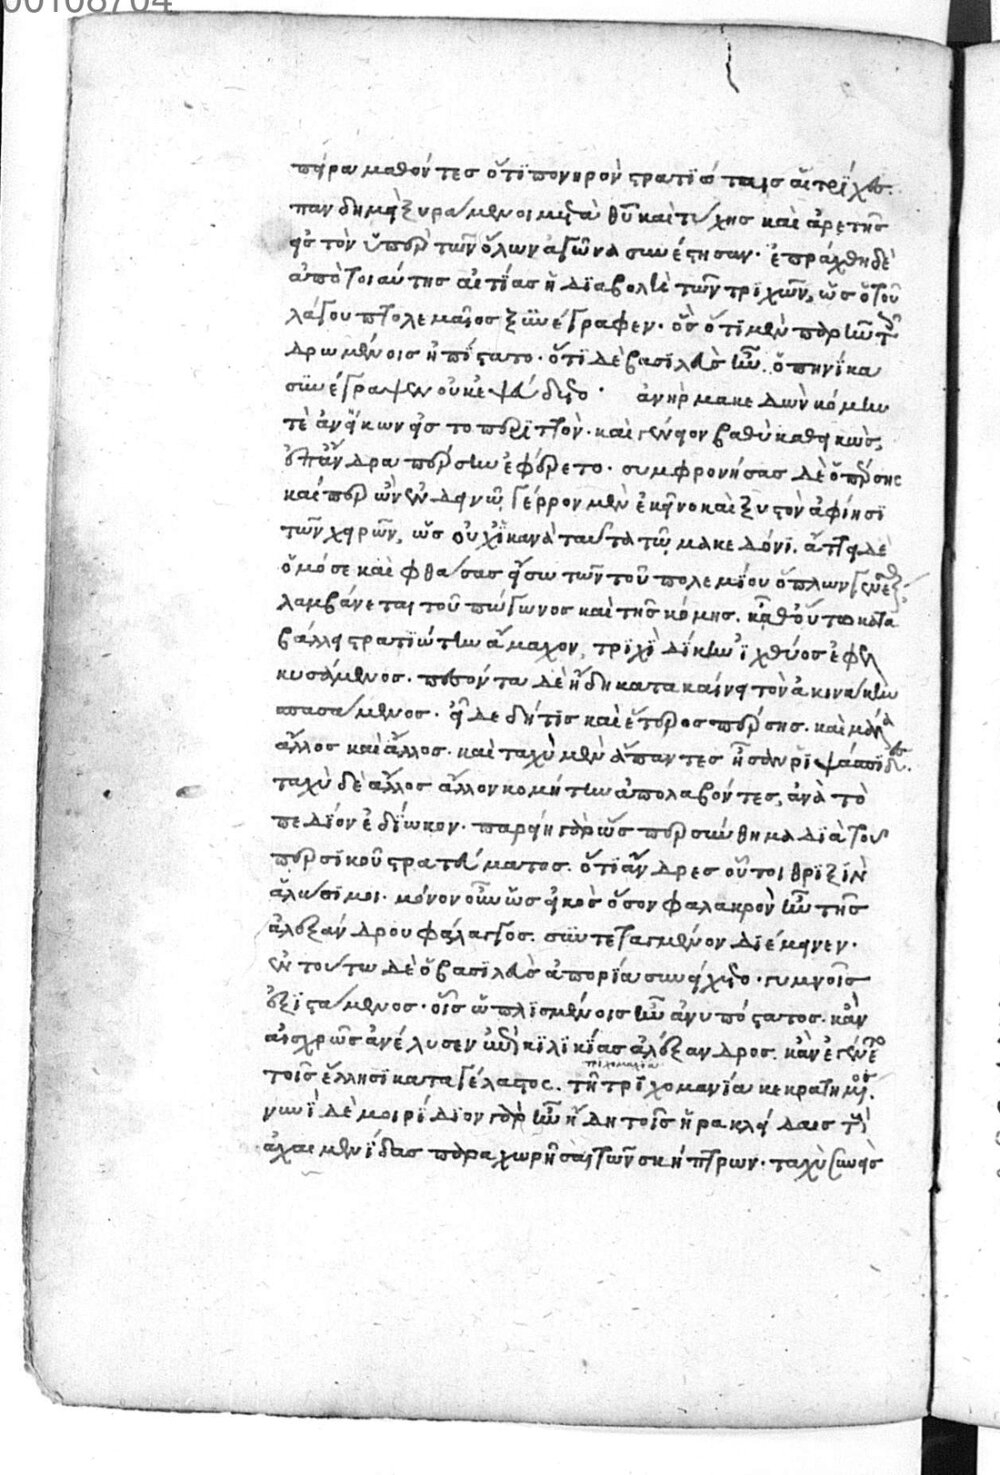 00108704
πείρα μαθόντες ὅτι πονηρὸν στρατιώταις αἱ τρίχες.
πανδημεὶ ξυράμενοι μετὰ θυ καὶ τύχης καὶ ἀρετῆς
εἰς τὸν ὑπὲρ τῶν ὅλων ἀγῶνα συνέστησαν. ἐπράχθη δὲ
ἀπὸ τοιαύτης αἰτίας ἡ διαβολὴ τῶν τριχῶν, ὡς ὁ τοῦ
λάγου πτολεμαῖος ξυνέγραφεν. ὃς ὅτι μὲν παρῆν τοῖς
δρωμένοις ἠπίστατο. ὅτι δὲ βασιλεὺς ἦν. ὁπηνίκα
συνέγραψεν οὐκ ἐψεύδετο. ἀνὴρ μακεδὼν κόμην
τὲ ἀνήκων εἰς τὸ περιττὸν. καὶ γένειον βαθὺ καθεικὼς,
ἐπ' ἄνδρα πέρσην ἐφέρετο. συμφρονήσας δὲ ὁ πέρσης
καίπερ ὢν ἐν δεινῶ, γέρρον μὲν ἐκεῖνο καὶ ξυστὸν ἀφίησι
τῶν χειρῶν, ὡς οὐχ ἱκανὰ ταῦτα τῶ μακεδόνι. ἄττει δὲ
ὁμόσε καὶ φθάσας εἴσω τῶν τοῦ πολεμίου ὅπλων γενέσθαι
λαμβάνεται τοῦ πώγωνος καὶ τῆς κόμης. καθ' οὕτω κατα
βάλλει στρατιώτην ἄμαχον, τριχὶ δίκην ἰχθύος ἐφελ
κυσάμενος. πεσόντα δὲ ἤδη κατακαίνει τὸν ἀκινάκην
σπασάμενος. εἶδε δή τις καὶ ἕτερος πέρσης. καὶ μάλα
ἄλλος καὶ ἄλλος. καὶ ταχὺ μὲν ἅπαντες ἦσαν ῥιψάσπιδες.
ταχὺ δὲ ἄλλος ἄλλον κομήτην ἀπολαβόντες, ἀνὰ τὸ
πεδίον ἐδίωκον. παρῄει γὰρ ὡς περ σύνθημα διὰ τοῦ
περσικοῦ στρατεύματος. ὅτι ἄνδρες οὗτοι θριξὶν
ἁλώσιμοι. μόνον οὖν ὡς εἰκὸς ὅσον φαλακρὸν ἦν τῆς
ἀλεξάνδρου φάλαγγος. συντεταγμένον διέμεινεν.
ἐν τούτω δὲ ὁ βασιλεὺς ἀπορία συνείχετο. γυμνοῖς
ἐξιστάμενος. οἷς ὡπλισμένοις ἦν ἀνυπόστατος. κἂν
αἰσχρῶς ἀνέλυσεν ἐπὶ κιλικίας ἀλέξανδρος. κἂν ἐγένετο
τοῖς ἕλλησι κατάγέλαστος. τῆ τριχομανία κεκρατημένος.
νυνὶ δὲ μοιρίδιον γὰρ ἦν ἤδη τοῖς ἡρακλείδαις τοὺς
ἀχαιμενίδας παραχωρῆσαι τῶν σκήπτρων. ταχὺ συνεὶς